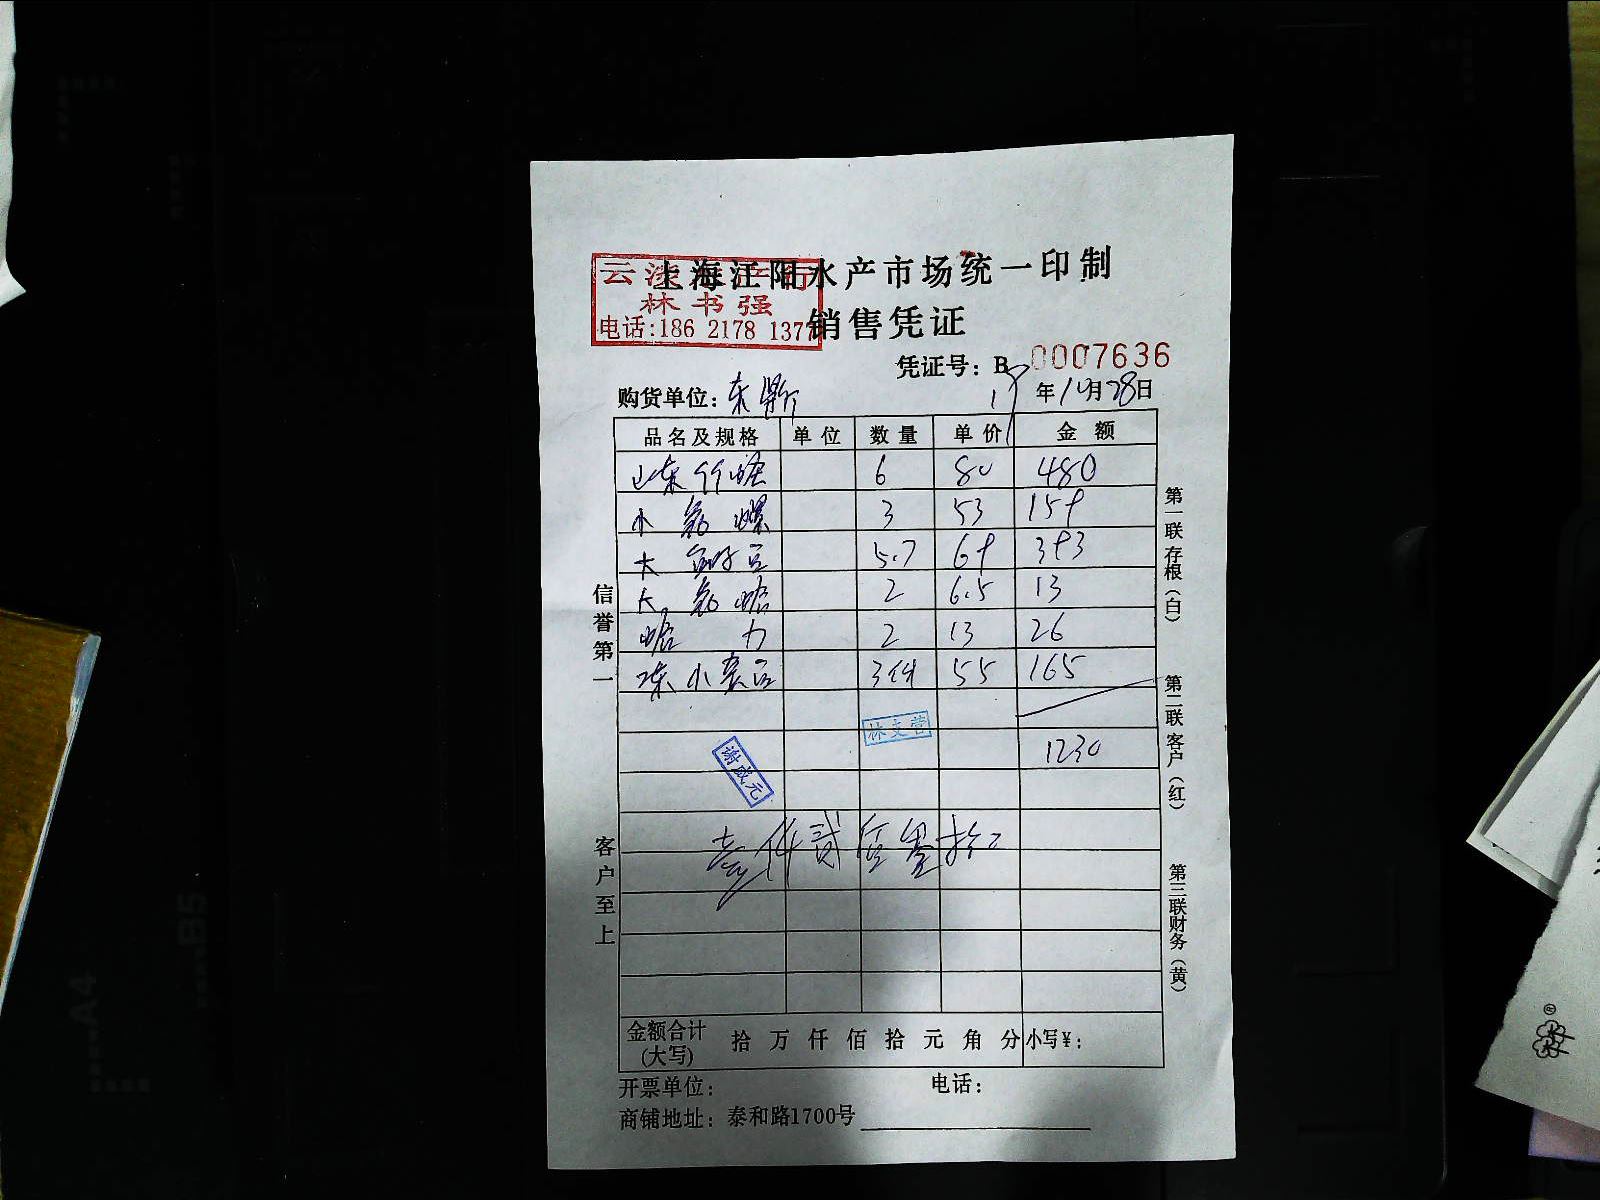 上海江阳水产市场统一印制
云 行
林书强
电话:186 2178 1377
销售凭证
凭证号：B 0007636
购货单位：东 年10月28日
品名及规格 单位 数量 单价 金额
山东竹蛏 6 80 480
小 螺 3 53 159
大 豆 5.7 69 393
大 蛤 2 6.5 13
蛤 力 2 13 26
冻小 豆 3件 55 165
林文营
1230
谢成元
壹仟贰佰 拾
金额合计(大写) 拾 万 仟 佰 拾 元 角 分 小写￥：
开票单位： 电话：
商铺地址：泰和路1700号
信誉第一
客户至上
第一联存根（白）
第二联客户（红）
第三联财务（黄）
A4
B5